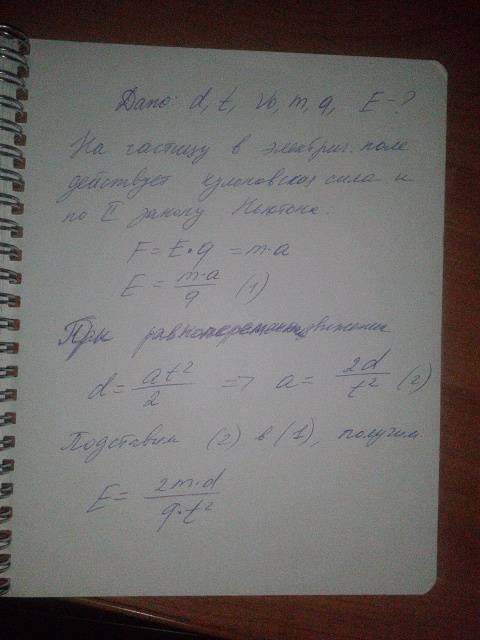 Дано: d, t, v₀, m, q, E-?
На частицу в электрич. поле
действует кулоновская сила и
по II закону Ньютона:
F = E•q = m·a
E = m·a/q (1)
При равнопеременном движении
d = at²/2 => a = 2d/t² (2)
Подставим (2) в (1), получим
E = 2m·d/q•t²